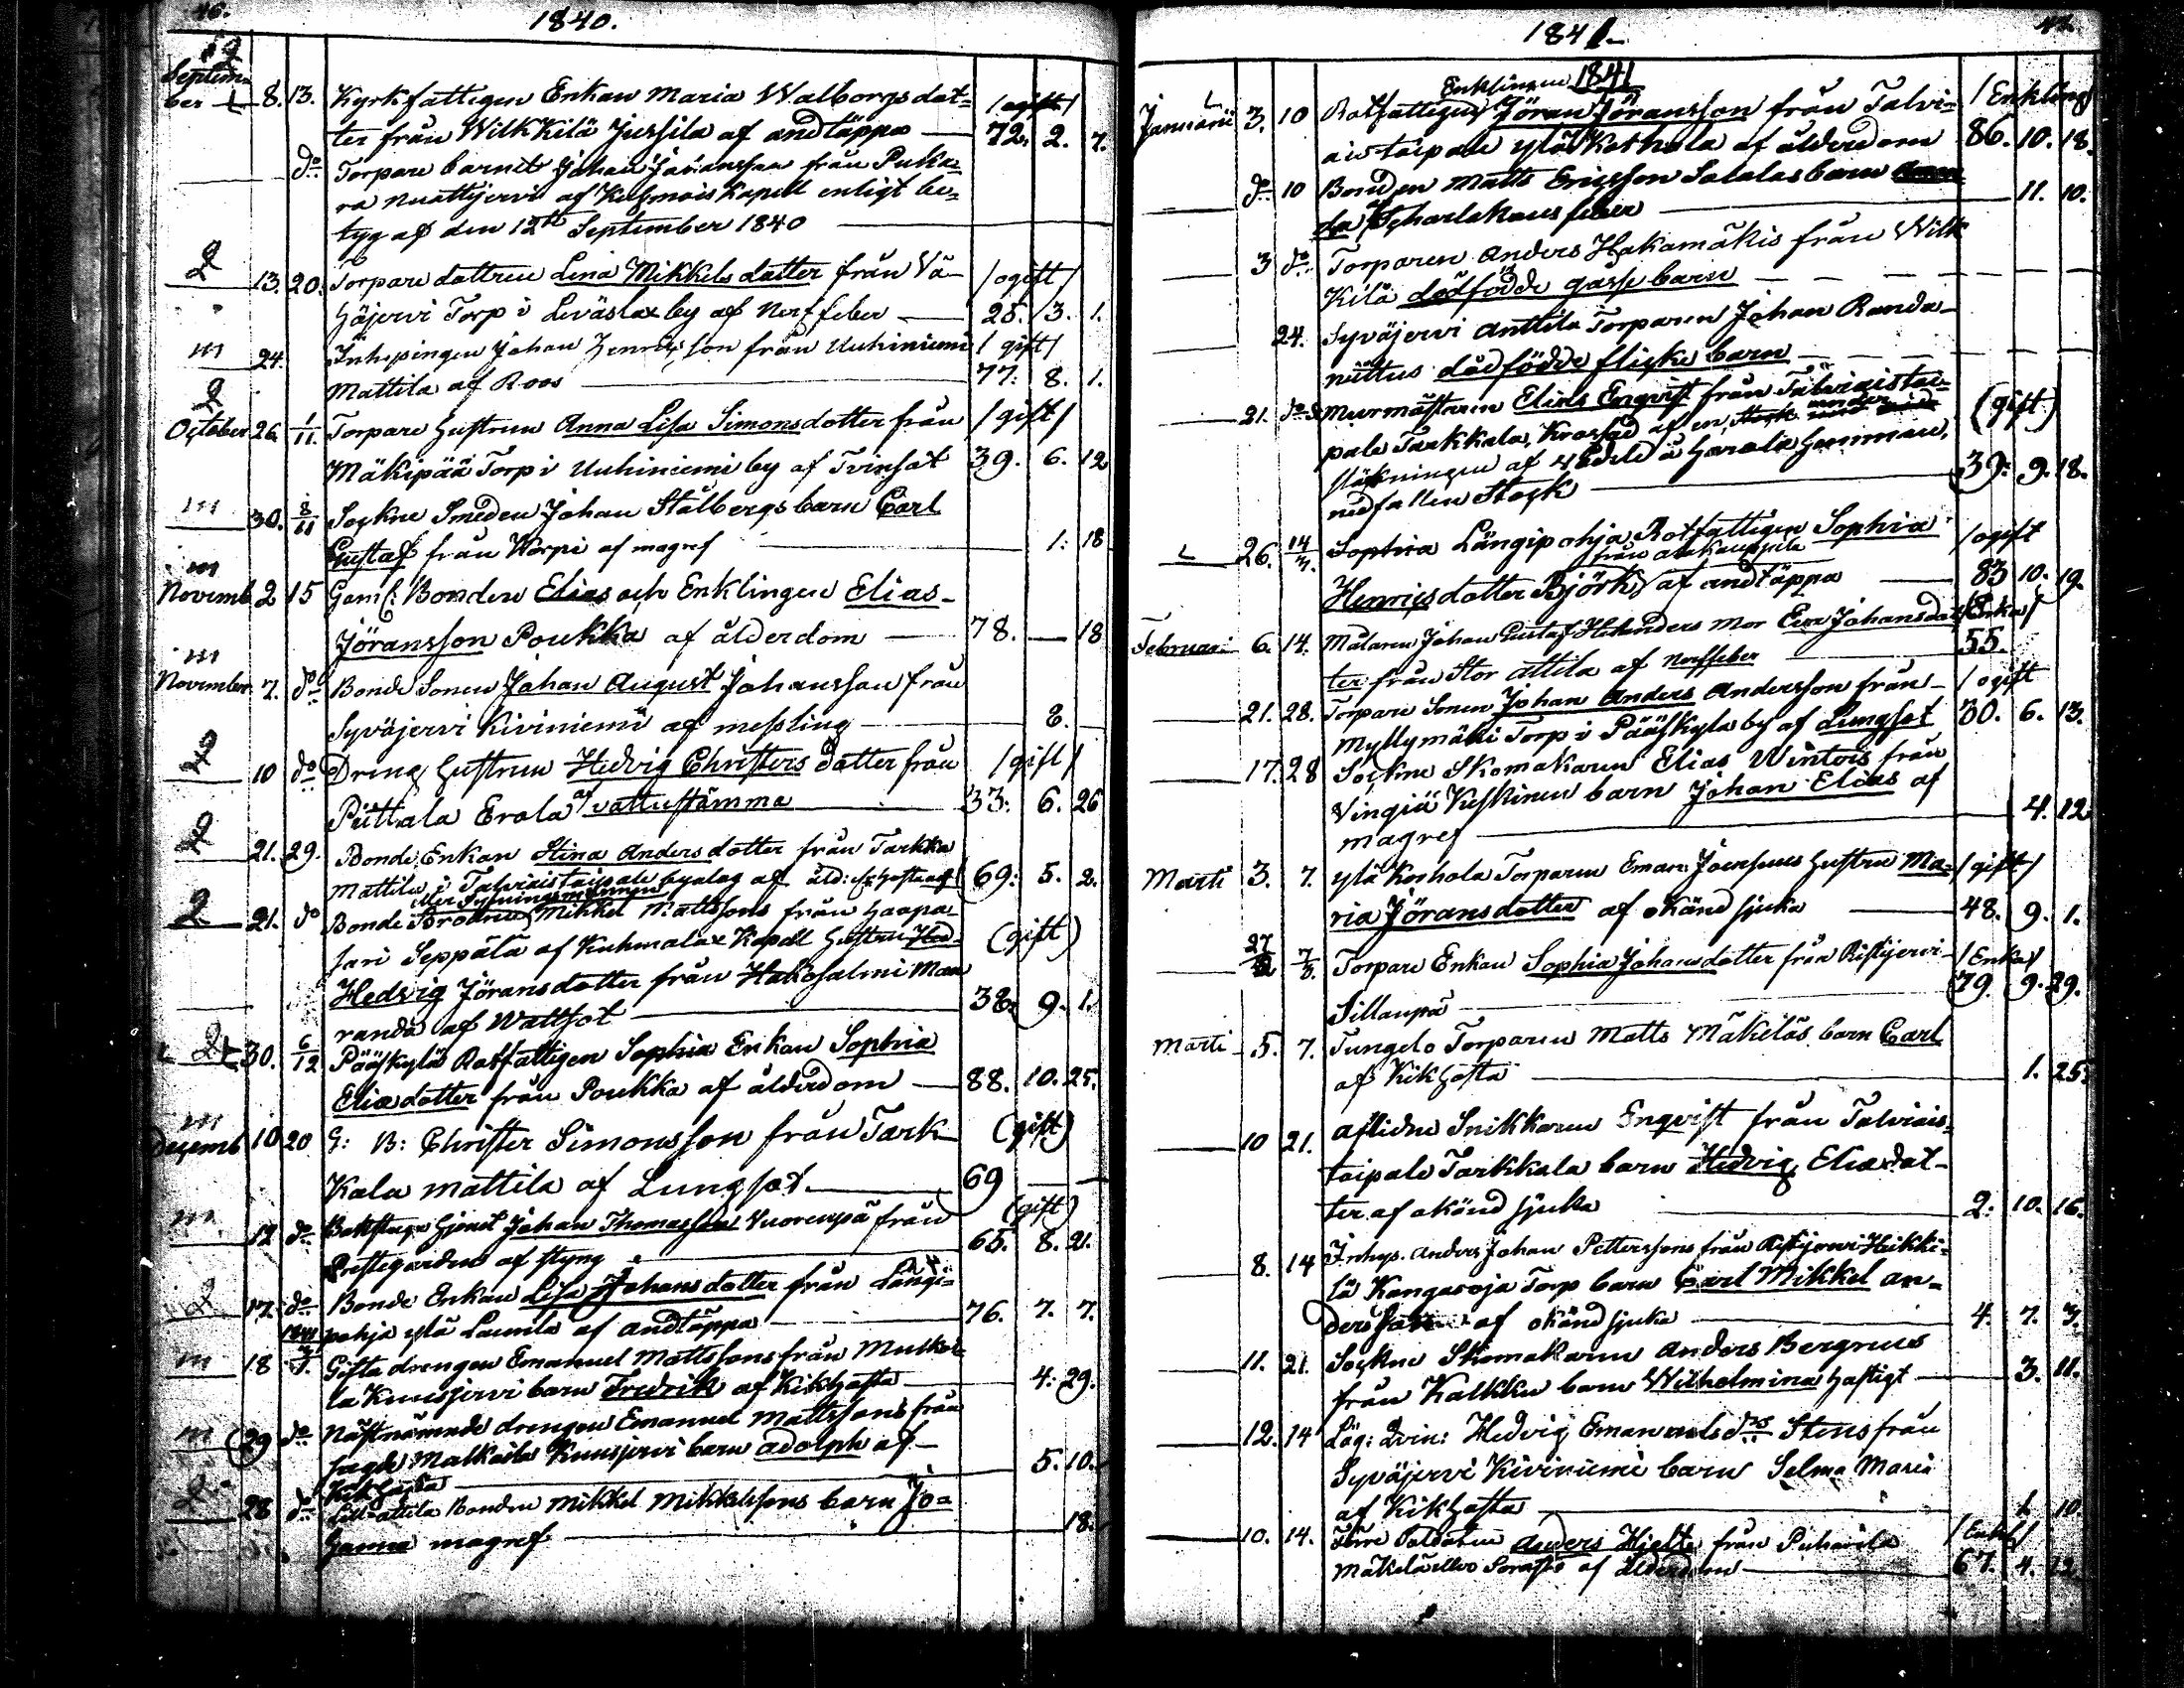 46.
1840.
Septem-
ber 8. 13. Kyrkfattigen Enkan Maria Walborgsdot= /ogift/
ter från Wilkkilä Jussila af andtäppa 72. 2. 7.
do Torpare barnet Johan Johansson från Puka=
ra af Kuhmois Kapell enligt be=
tyg af den 12te September 1840
2 13. 20. Torpare dottren Lina Mikkels dotter från Vä- /ogift/
häjervi Torp i Leväslax by af Nerffeber 25. 3. 1.
m 24. Inhysingen Johan Henricsson från Uuhiniemi /gift/
Mattila af Roos 77. 8. 1.
2
October 26. 1/11 Torpare hustrun Anna Lisa Simonsdotter från /gift/
Mäkipää Torp i Uuhiniemi by af Tvinsot 39. 6. 12
m 30. 8/11 Sockne Smeden Johan Stålbergs barn Carl
Gustaf från Korpi af magref 1. 18
m
Novemb 2 15 Gaml: Bonden Elias och Enklingen Elias
Jöransson Poukka af ålderdom 78. — 18
m
November 7. do Bonde Sonen Johan August Johansson från
Syväjervi Kiviniemi af messling 8.
2 10 do Dreng hustrun Hedvig Christers dotter från /gift/
Püttala Erola af vattustämma 33. 6. 26
2 21. 29. Bonde Enkan Stina Anders dotter från Tarkka
Mattila i Talviaistaipale byalag af 69: 5. 2.
2 21. do Bonde Brodren Mikkel Mattssons från Haapa-
sari Seppälä af Kuhmalax Kapell hustru (gift)
Hedvig Jöransdotter från Hakosalmi Maa
randa af Wattsot 38. 9. 1.
2 30. 6/12 Pääskylä Rotfattigen Sophia Enkan Sophia
Eliædotter från Poukka af ålderdom 88. 10. 25.
m
Decemb 10 20 G: B: Christer Simonsson från Tark (gift)
kala Mattila af Lungsot 69 — —
m 12 do Backstugu hjonet Johan Thomasson Vuorenpä från (gift)
Prestegården af styng 65. 8. 21.
2 17. do Bonde Enkan Lisa Johansdotter från Längi=
pohja ylä Laurila af andtäppa 76. 7. 7.
m 18 1841 Gifta drengen Emanuel Mattssons från Mulko-
la Kuusjervi barn Fredrik af Kikhosta 4. 29.
m 29 do Nästnämnde drengen Emanuel Mattssons från
sagde Kuusjervi barn Adolph af 5. 10.
Kikhosta
2 28 do Lill-attila Bonden Mikkel Mikkelssons barn Jo=
hanna magref 18.
1841
47.
Enklingen 1841
Januarii 3. 10 Rotfattigen Jöran Jöransson från Talvi= /Enkling/
aistaipale ylä Koskola af ålderdom 86. 10. 18.
do 10 Bonden Matts Ericsson Salalas barn
Scharlakansfeber 11. 10.
3 do Torparen Anders Hakamäkis från Wilk
kilä dödfödde gosse barn
24. Syväjervi Anttila Torparen Johan Randa-
nüttus dödfödde flicke barn
21. do Murmästaren Elias Enqvist från Talviaistai=
pale Tarkkala, Krossad af en (gift)
släckningen af elden å Harala Hemman,
nedfallen Stock 39. 9. 18.
26. 14/3. Sophia Längipohja Rotfattigen Sophia /ogift
Henricsdotter Björk af andtäppa 83 10. 19.
Februari 6. 14. Målaren Johan Gustaf Helanders Mor Eva Johansdot /Enka/
ter från Stor attila af Nerffeber 55.
21. 28. Torpare Sonen Johan Anders Andersson från /ogift
Myllymäki Torp i Pääskyla by af Lungsot 30. 6. 13.
17. 28 Sockne Skomakaren Elias Wintois från
Vingiä Keskinen barn Johan Elias af
magref 4. 12
Marti 3. 7. ylä Koskola Torparen Eman: Joensuus hustru Ma= /gift/
ria Jöransdotter af okänd sjuka 48. 9. 1.
27/2 7/3. Torpare Enkan Sophia Johansdotter från Ristijervi /Enka/
Sillanpä 79. 9. 29.
Marti 5. 7. Tungelo Torparen Matts Mäkiläs barn Carl
af Kikhosta 1. 25.
10 21. Aflidne Snikkaren Enqvist från Talviais=
taipale Tarkkala barn Hedvig Eliædot-
ter af okänd sjuka 2: 10. 16.
8. 14 Inhys. Anders Johan Petterssons från Ristijervi Heikki=
lä Kangasoja Torp barn Carl Mikkel An=
dersson af okänd sjuka 4. 7. 3.
11. 21. Sockne Skomakaren Anders Bergrens
från Kalkku barn Wilhelmina hastigt 3. 11.
12. 14 Läg: qvin: Hedvig Emanuels dr Stens från
Syväjervi Kiviniemi barn Selma Maria
af Kikhosta 1. 10.
10. 14. Förre Soldaten Anders Hjelte från Puharila /Enkl/
Mäkelä af ålderdom 67. 4. 12